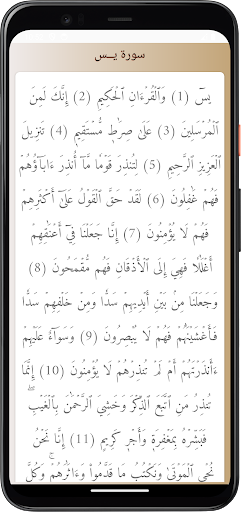 سورة يــس
يسٓ (1) وَٱلْقُرْءَانِ ٱلْحَكِيمِ (2) إِنَّكَ لَمِنَ
ٱلْمُرْسَلِينَ (3) عَلَىٰ صِرَٰطٍ مُّسْتَقِيمٍ (4) تَنزِيلَ
ٱلْعَزِيزِ ٱلرَّحِيمِ (5) لِتُنذِرَ قَوْمًا مَّآ أُنذِرَ ءَابَآؤُهُمْ
فَهُمْ غَٰفِلُونَ (6) لَقَدْ حَقَّ ٱلْقَوْلُ عَلَىٰٓ أَكْثَرِهِمْ
فَهُمْ لَا يُؤْمِنُونَ (7) إِنَّا جَعَلْنَا فِىٓ أَعْنَٰقِهِمْ
أَغْلَٰلًا فَهِىَ إِلَى ٱلْأَذْقَانِ فَهُم مُّقْمَحُونَ (8)
وَجَعَلْنَا مِنۢ بَيْنِ أَيْدِيهِمْ سَدًّا وَمِنْ خَلْفِهِمْ سَدًّا
فَأَغْشَيْنَٰهُمْ فَهُمْ لَا يُبْصِرُونَ (9) وَسَوَآءٌ عَلَيْهِمْ
ءَأَنذَرْتَهُمْ أَمْ لَمْ تُنذِرْهُمْ لَا يُؤْمِنُونَ (10) إِنَّمَا
تُنذِرُ مَنِ ٱتَّبَعَ ٱلذِّكْرَ وَخَشِىَ ٱلرَّحْمَٰنَ بِٱلْغَيْبِ ۖ
فَبَشِّرْهُ بِمَغْفِرَةٍ وَأَجْرٍ كَرِيمٍ (11) إِنَّا نَحْنُ
نُحْىِ ٱلْمَوْتَىٰ وَنَكْتُبُ مَا قَدَّمُوا۟ وَءَاثَٰرَهُمْ ۚ وَكُلَّ